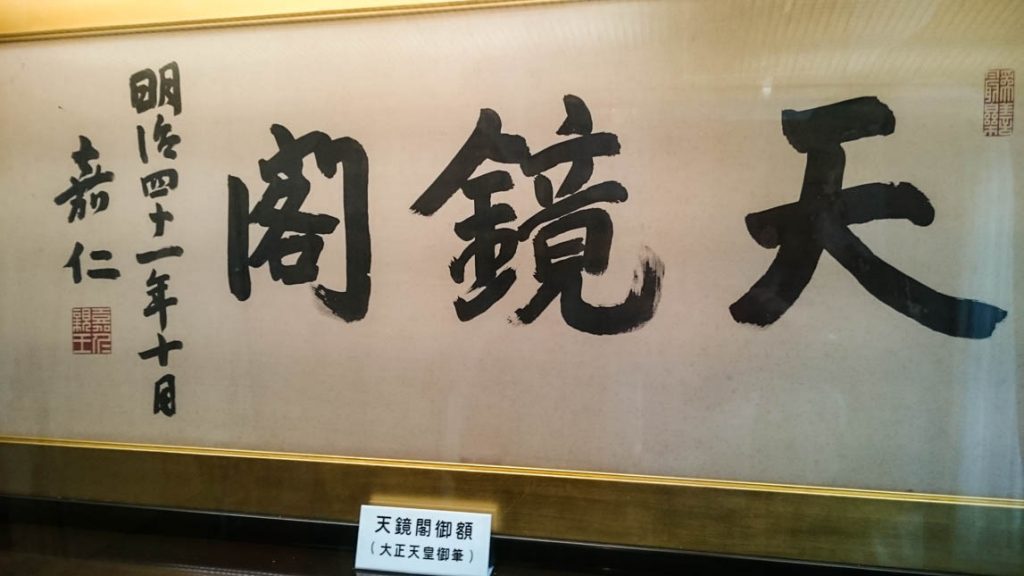 天鏡閣
明治四十一年十月
嘉仁
天鏡閣御額
(大正天皇御筆)